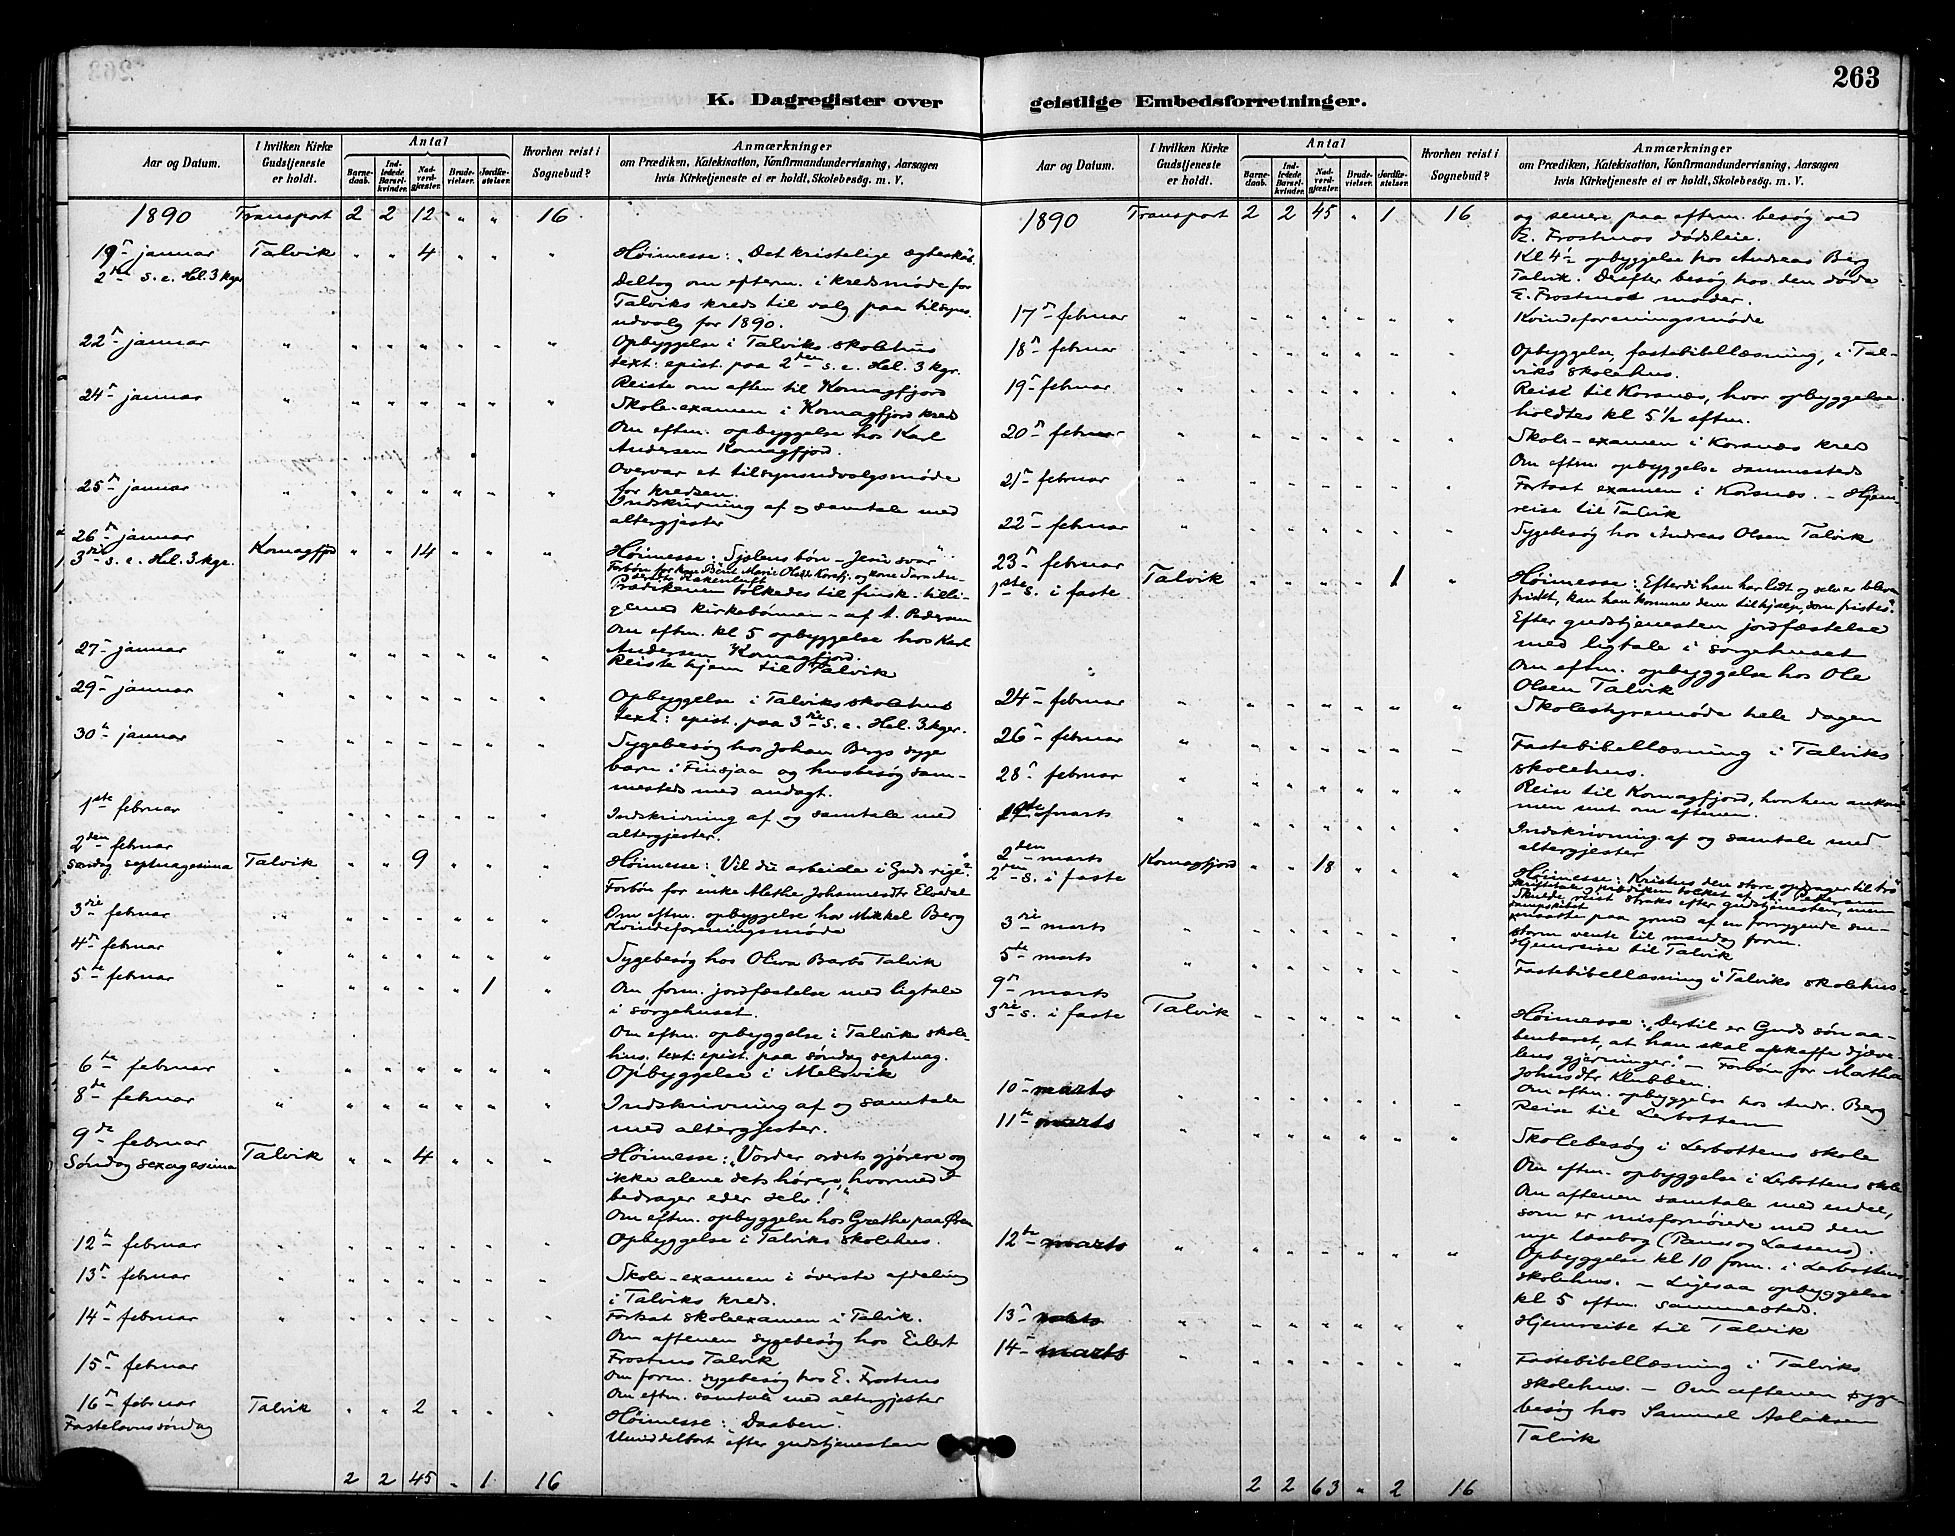 263
K. Dagregister over geistlige Embedsforretninger.
Aar og Datum.
I hvilken Kirke Gudstjeneste er holdt.
Antal
Barnedaab.
Indledede Barselkvinder.
Nadverdgjester.
Brudevielser.
Jordfæstelser.
Hvorhen reist i Sognebud?
Anmærkninger
om Prædiken, Katekisation, Konfirmandundervisning, Aarsagen
hvis Kirketjeneste ei er holdt, Skolebesøg. m. V.
1890 Transport 2 2 12 " " 16
19de januar Talvik " " 4 " " " Høimesse: „Det kristelige ægteskab.
2den s. e. Hel. 3 kgr
Deltog om efterm. i kredsmøde for
Talviks kreds til valg paa tilsyns-
udvalg for 1890.
22 januar " " " " " " " Opbyggelse i Talviks skolehus
text: epist. paa 2den s. e. Hel. 3 kgr.
24 januar " " " " " " " Reiste om aften til Komagfjord
Skole-examen i Komagfjord kreds
Om eftm. opbyggelse hos Karl
Andersen Komagfjord.
25 januar " " " " " " " Overvar et tilsynsudvalgsmøde
for kredsen.
Indskrivning af og samtale med
altergjester
26 januar
3die s. e. Hel. 3 kgr. Komagfjord " " 14 " " " Høimesse: „Sjælens bøn – Jesu svar".
Prædikenen tolkedes til finsk – tilli-
gemed kirkebønnen – af A. Pedersen
Om eftm. kl 5 opbyggelse hos Karl
Andersen Komagfjord.
27 januar " " " " " " " Reiste hjem til Talvik
29 januar " " " " " " " Opbyggelse i Talviks skolehus
text: epist. paa 3die s. e. Hel. 3 kgr.
30te januar " " " " " " " Sygebesøg hos Johan Bergs syge
barn i Finsjaa og husbesøg sam-
mesteds med andagt.
1ste februar " " " " " " " Indskrivning af og samtale med
altergjester.
2den februar
Søndag septuagesima Talvik " " 9 " " " Høimesse: „Vil du arbeide i Guds rige"?
Forbøn for enke Methe Johannesdtr Elvedal
Om eftm. opbyggelse hos Mikkel Berg
3die februar " " " " " " " Kvindeforeningsmøde
4 februar " " " " " " " Sygebesøg hos Oliva Barts Talvik
5te februar " " " " " 1 " Om form. jordfæstelse med ligtale
i sørgehuset.
Om eftm. opbyggelse i Talvik skole-
hus. text: epist. paa søndag septuag.
6te februar " " " " " " " Opbyggelse i Melsvik
8de februar " " " " " " " Indskrivning af og samtale
med altergjester.
9de februar
Søndag sexagesima Talvik " " 4 " " " Høimesse: „Vorder ordets gjørere og
ikke alene dets hørere, hvormed I
bedrager eder selv!"
Om eftm. opbyggelse hos Grethe paa Øren
12te februar " " " " " " " Opbyggelse i Talviks skolehus.
13 februar " " " " " " " Skole-examen i øverste afdeling
i Talviks kreds.
14 februar " " " " " " " Fortsat skoleexamen i Talvik.
Om aftenen sygebesøg hos Eilert
Frostmo Talvik
15 februar
Om form. sygebesøg hos E. Frostmo
Om eftm. samtale med altergjester
16 februar Talvik " " 2 " " " Høimesse: „Daaben".
Fastelavns søndag
Umiddelbart efter gudstjenesten
2 2 45 " 1 16
Aar og Datum.
I hvilken Kirke Gudstjeneste er holdt.
Antal
Barnedaab.
Indledede Barselkvinder.
Nadverdgjester.
Brudevielser.
Jordfæstelser.
Hvorhen reist i Sognebud?
Anmærkninger
om Prædiken, Katekisation, Konfirmandundervisning, Aarsagen
hvis Kirketjeneste ei er holdt, Skolebesøg. m. V.
1890 Transport 2 2 45 " 1 16 og senere paa efterm. besøg ved
E. Frostmos dødsleie.
Kl 4 opbyggelse hos Andreas Berg
Talvik. Derefter besøg hos den døde
E. Frostmos moder.
17 februar " " " " " " " Kvindeforeningsmøde
18 februar " " " " " " " Opbyggelse, fastebibellæsning, i Tal-
viks skolehus.
19 februar " " " " " " " Reise til Korsnæs, hvor opbyggelse
holdtes kl 5 1/2 eftm.
20 februar " " " " " " " Skole-examen i Korsnæs kreds
Om eftm. opbyggelse sammesteds
21 februar " " " " " " " Fortsat examen i Korsnæs. – Hjem-
reise til Talvik
22 februar " " " " " " " Sygebesøg hos Andreas Olsen Talvik
23 februar
1ste s. i faste Talvik " " " " 1 " Høimesse: „Efterdi han har lidt og selv er bleven
fristet, kan han komme dem tilhjælp, som fristes".
Efter gudstjenesten jordfæstelse
med ligtale i sørgehuset
Om eftm. opbyggelse hos Ole
Olsen Talvik
24 februar " " " " " " " Skolestyremøde hele dagen
26 februar " " " " " " " Fastebibellæsning i Talviks
skolehus.
28 februar " " " " " " " Reise til Komagfjord, hvorhen ankom-
men sent om aftenen.
1ste marts " " " " " " " Indskrivning af og samtale med
altergjester
2den marts
2den s. i faste Komagfjord " " 18 " " " Høimesse: „Kristus den store opdrager til tro"
Skriftetale og prædiken tolket af A. Pedersen
Skulde reist straks efter gudstjenesten, men
maatte paa grund af en forrygende sne-
storm vente til mandag form.
3die marts " " " " " " " Hjemreise til Talvik
5te marts " " " " " " " Fastebibellæsning i Talviks skolehus
9 marts
3die s. i faste Talvik " " " " " " Høimesse: „Dertil er Guds søn aa-
benbaret, at han skal afskaffe djæve-
lens gjerninger". – Forbøn for Martha
Johnsdtr Klubben.
Om eftm. opbyggelse hos Andr. Berg
10 marts " " " " " " " Reise til Lerbotten
11te marts " " " " " " " Skolebesøg i Lerbottens skole
Om eftm. opbyggelse i Lerbottens skole
Om aftenen samtale med endel,
som er misfornøiede med den
nye læsebog (Pauss og Lassens).
12te marts " " " " " " " Opbyggelse kl 10 form. i Lerbottens
skolehus. – Ligesaa opbyggelse
kl 5 eftm. sammested.
13 marts " " " " " " " Hjemreise til Talvik
14 marts " " " " " " " Fastebibellæsning i Talviks
skolehus. – Om aftenen syge-
besøg hos Samuel Aslaksen
Talvik
2 2 63 " 2 16